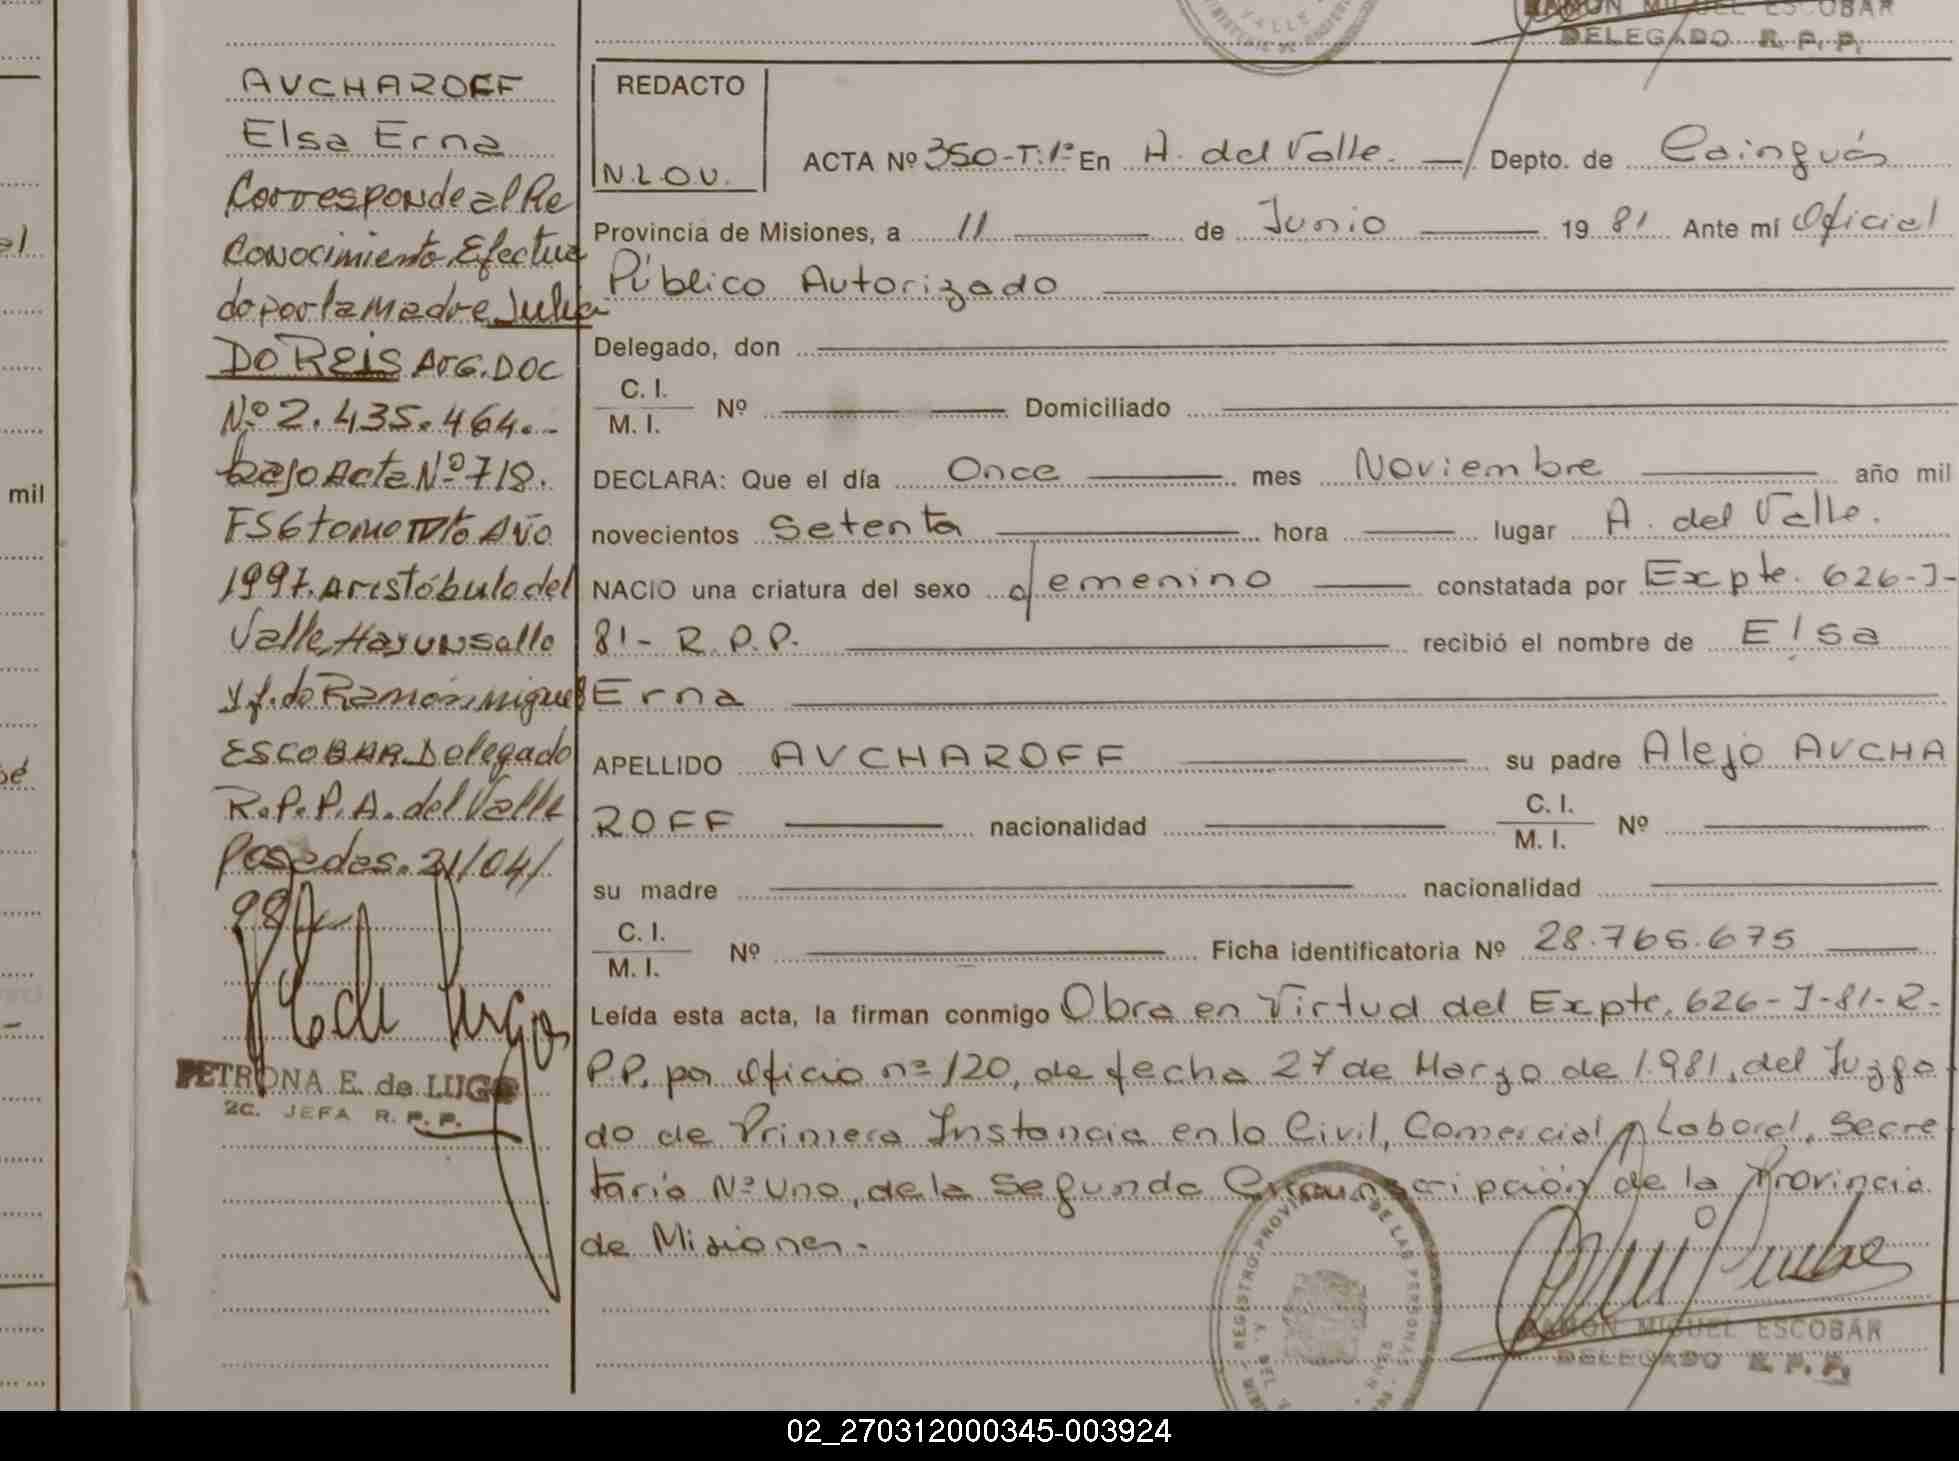 RAMON MIGUEL ESCOBAR
DELEGADO R. P. P.
VALLE
al
mil
AVCHAROFF
Elsa Erna
Corresponde al Re
conocimiento Efectua
do por la Madre Julia
DO REIS Arg. DOC
Nº 2.435.464.-
bajo Acta Nº 718.
FS 6 tomo IVto AÑO
1997. Aristóbulo del
Valle, Hay un sello
y f. do Ramón Miguel
ESCOBAR Delegado
R.P.P. A. del Valle
Posadas. 21/04/
98
PETRONA E. de LUGO
2c. JEFA R. P. P.
REDACTO
N.L.O.V.
ACTA Nº 350-T:1º En A. del Valle. Depto. de Cainguás
Provincia de Misiones, a 11 de Junio 19 81 Ante mí Oficial
Público Autorizado
Delegado, don
C. I.
M. I. Nº Domiciliado
DECLARA: Que el día Once mes Noviembre año mil
novecientos Setenta hora lugar A. del Valle.
NACIO una criatura del sexo femenino constatada por Expte. 626-J-
81- R.P.P. recibió el nombre de Elsa
Erna
APELLIDO AVCHAROFF su padre Alejo AVCHA
ROFF nacionalidad C. I.
M. I. Nº
su madre nacionalidad
C. I.
M. I. Nº Ficha identificatoria Nº 28.766.675
Leída esta acta, la firman conmigo Obra en Virtud del Expte. 626-J-81-R-
P.P. por oficio nº 120, de fecha 27 de Marzo de 1.981, del Juzga
do de Primera Instancia en lo Civil, Comercial y Laboral, Secre
taria Nº Uno, de la Segunda Circunscripción de la Provincia
de Misiones.
REGISTRO PROVINCIAL DE LAS PERSONAS
RAMON MIGUEL ESCOBAR
DELEGADO R. P. P.
02_270312000345-003924